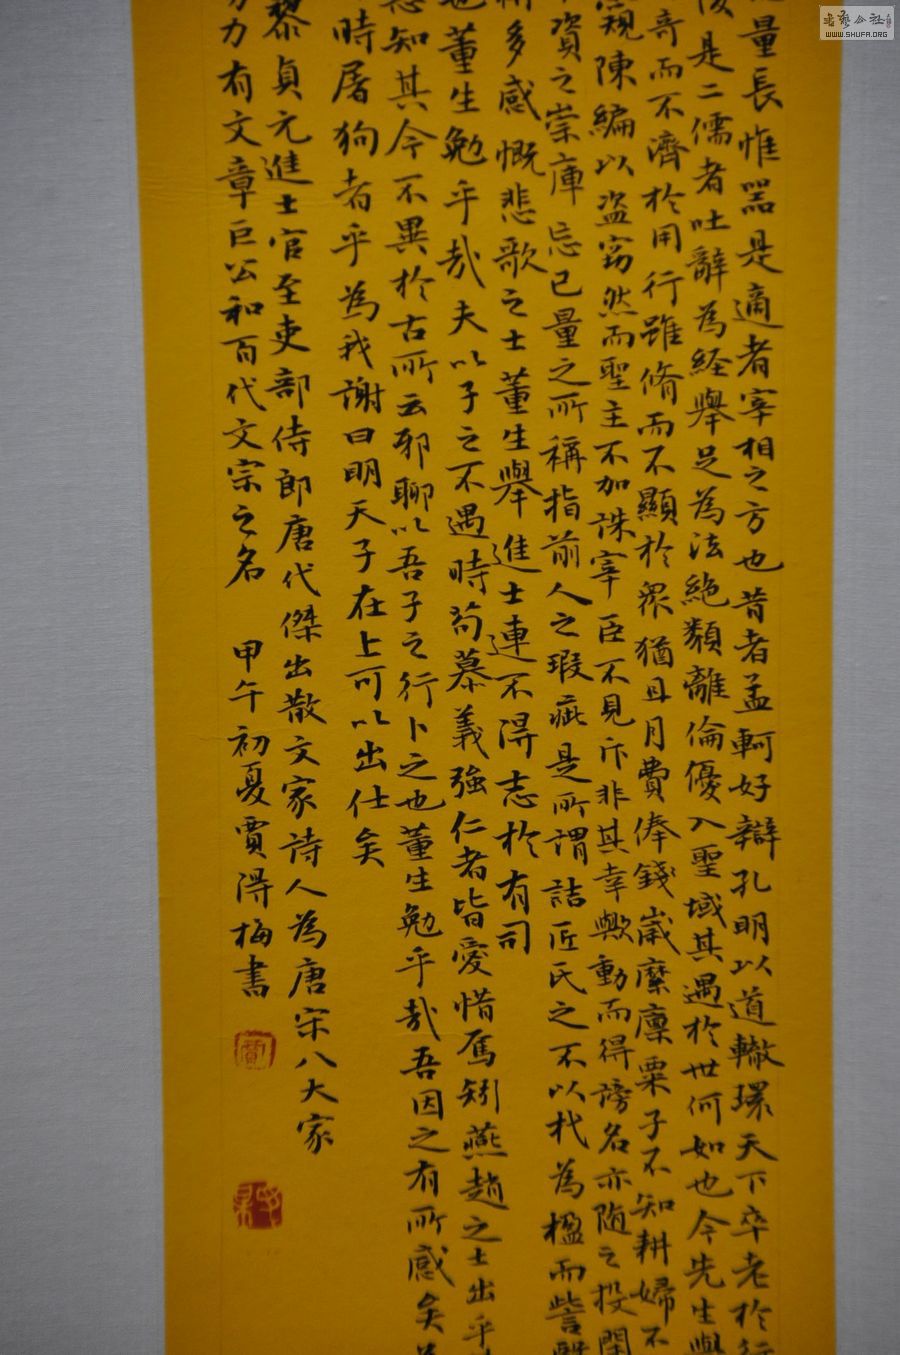 量長惟器是適者宰相之方也昔者孟軻好辯孔明以道轍環天下卒老於行
是二儒者吐辭為經舉足為法絕類離倫優入聖域其遇於世何如也今先生學
奇而不濟於用行雖脩而不顯於眾猶且月費俸錢歲糜廩粟子不知耕婦不
窺陳編以盜竊然而聖主不加誅宰臣不見斥非其幸歟動而得謗名亦随之投閑
資之崇庳忘己量之所稱指前人之瑕疵是所謂詰匠氏之不以杙為楹而訾醫
多感慨悲歌之士董生舉進士連不得志於有司
也董生勉乎哉夫以子之不遇時苟慕義強仁者皆愛惜焉矧燕趙之士出乎
知其今不異於古所云邪聊以吾子之行卜之也董生勉乎哉吾因之有所感矣
時屠狗者乎為我謝曰明天子在上可以出仕矣
黎貞元進士官至吏部侍郎唐代傑出散文家詩人為唐宋八大家
力有文章巨公和百代文宗之名 甲午初夏賈得梅書
賈
WWW.SHUFA.ORG